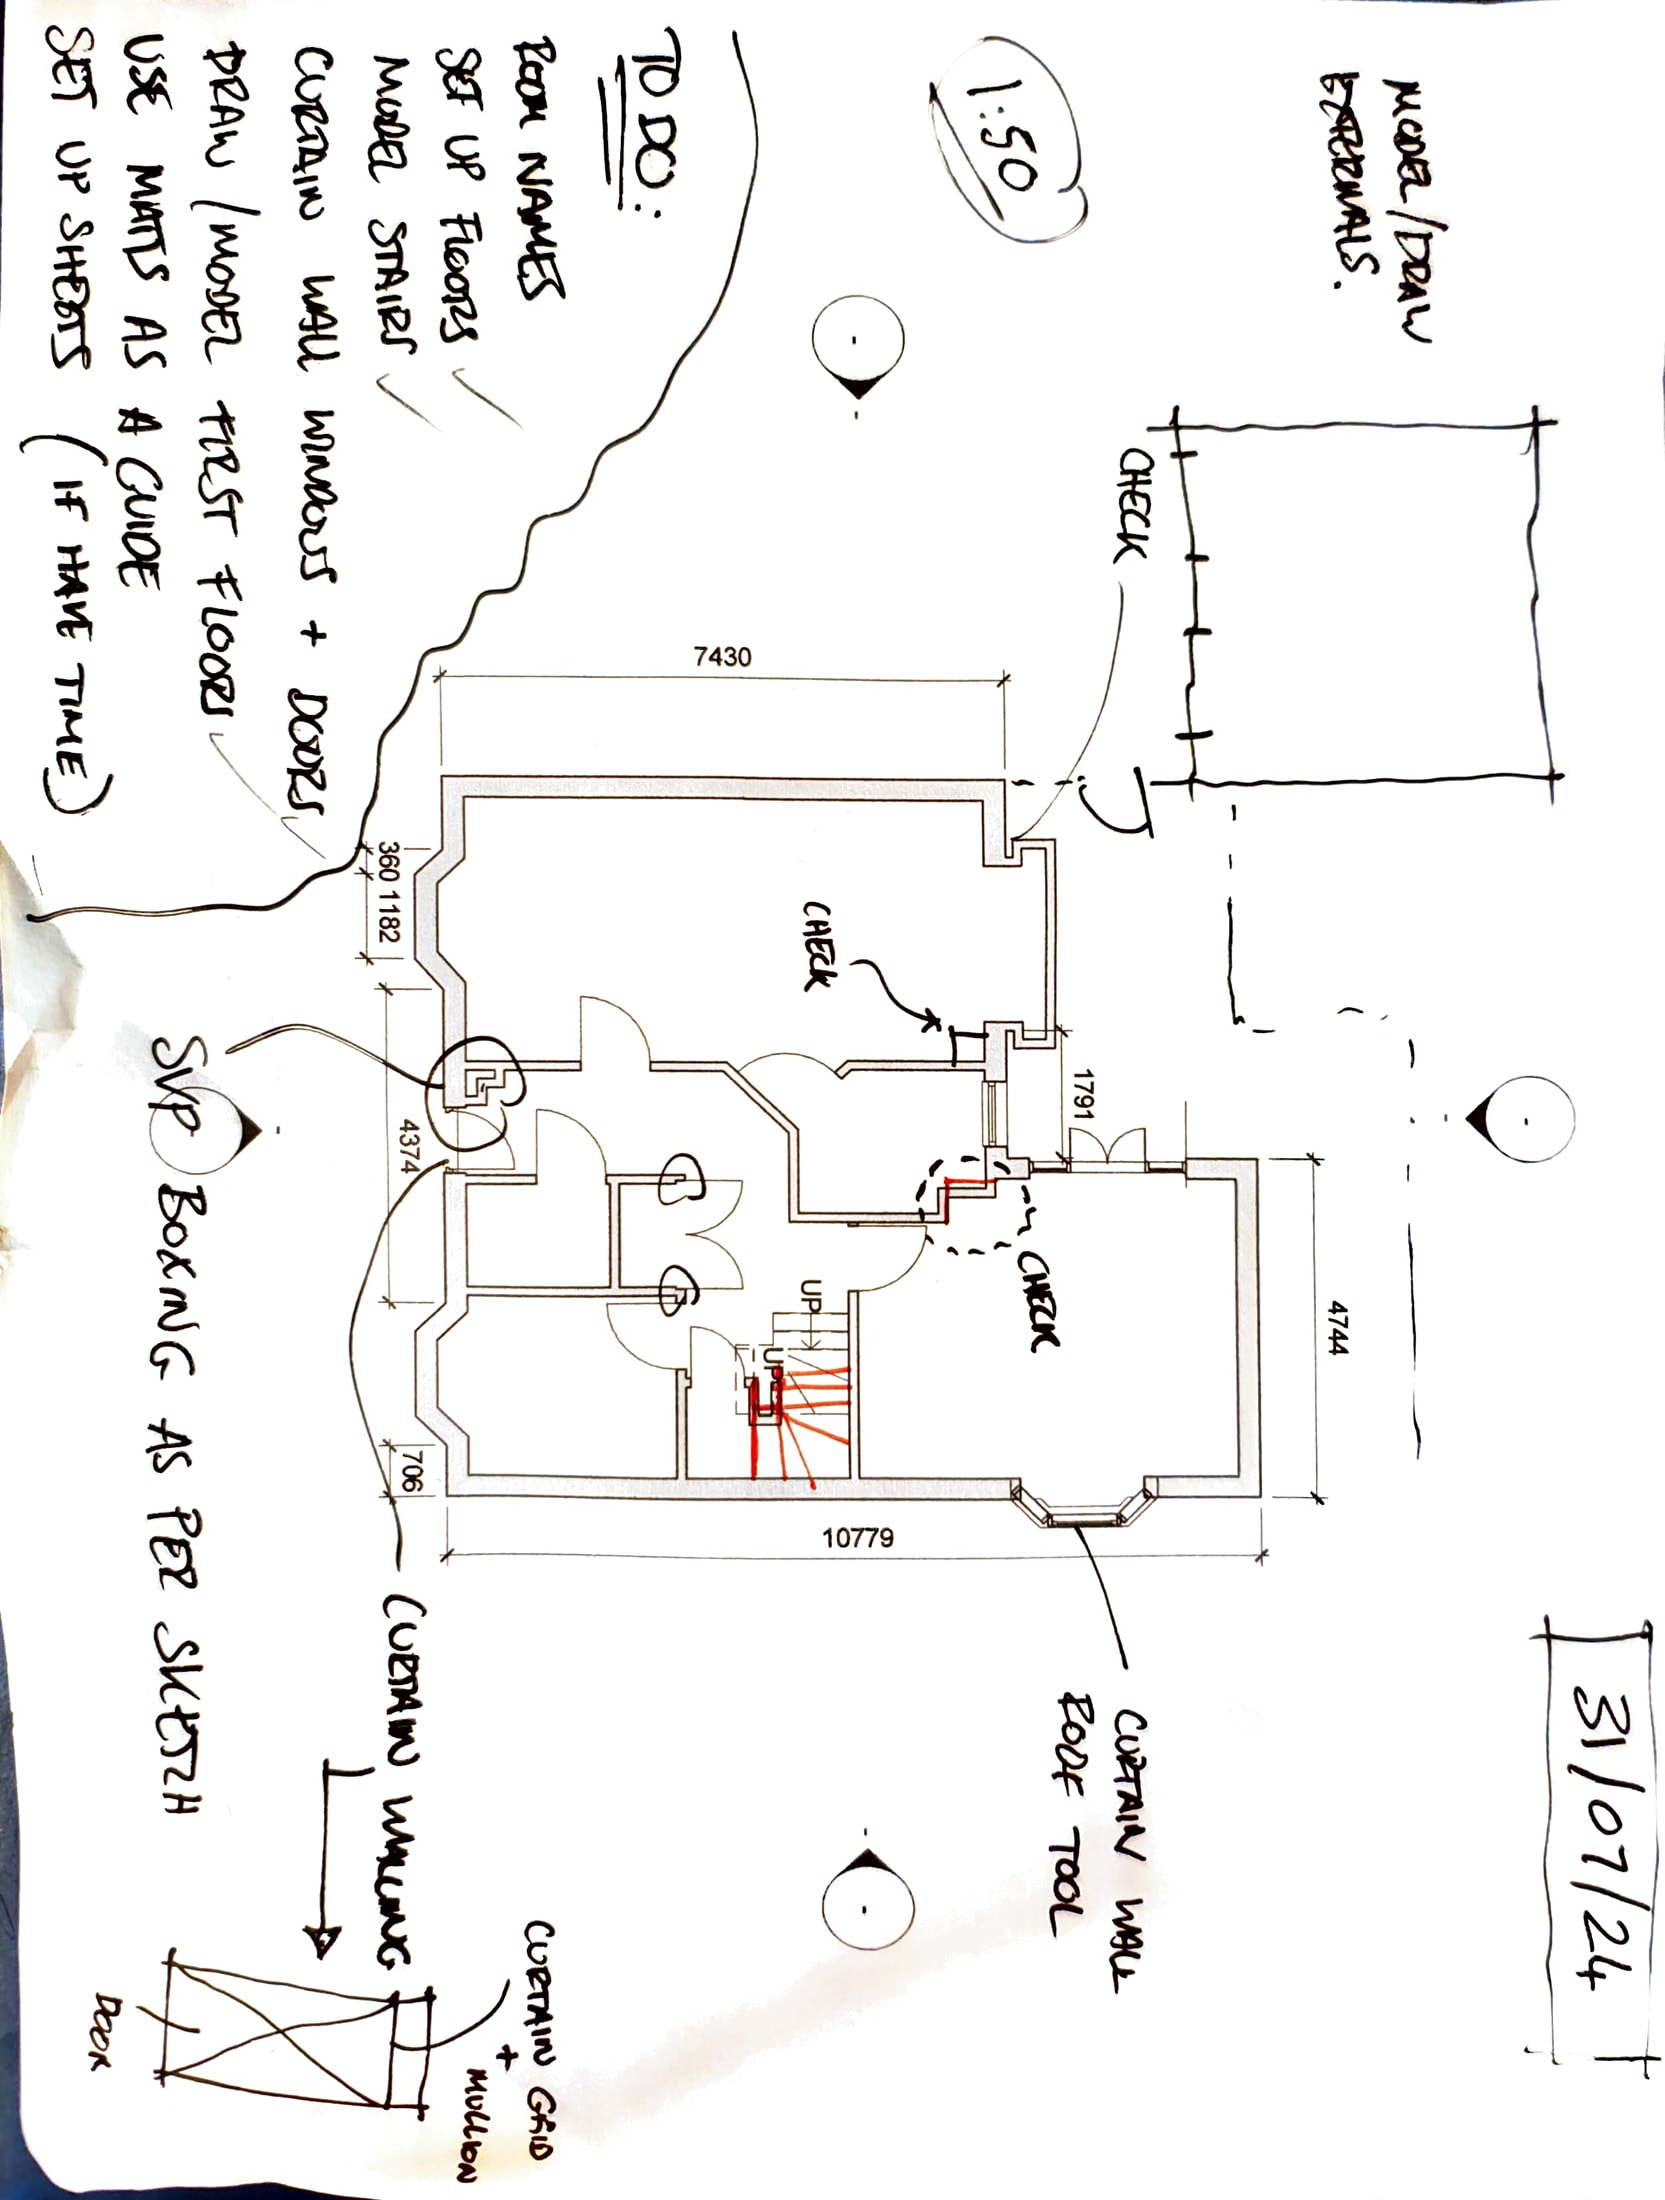 31/07/24
MODEL/DRAW
EXTERNALS.
1:50
CHECK
TO DO:
ROOM NAMES
SET UP FLOORS ✓
MODEL STAIRS ✓
CURTAIN WALL WINDOWS + DOORS
DRAW/MODEL FIRST FLOORS ✓
USE MATTS AS A GUIDE
SET UP SHEETS (IF HAVE TIME)
7430
1791
4744
CHECK
CHECK
UP
UP
10779
360
1182
4374
706
CURTAIN WALL
ROOF TOOL
SVP BOXING AS PER SKETCH
CURTAIN WALLING
CURTAIN GRID
+
MULLION
DOOR